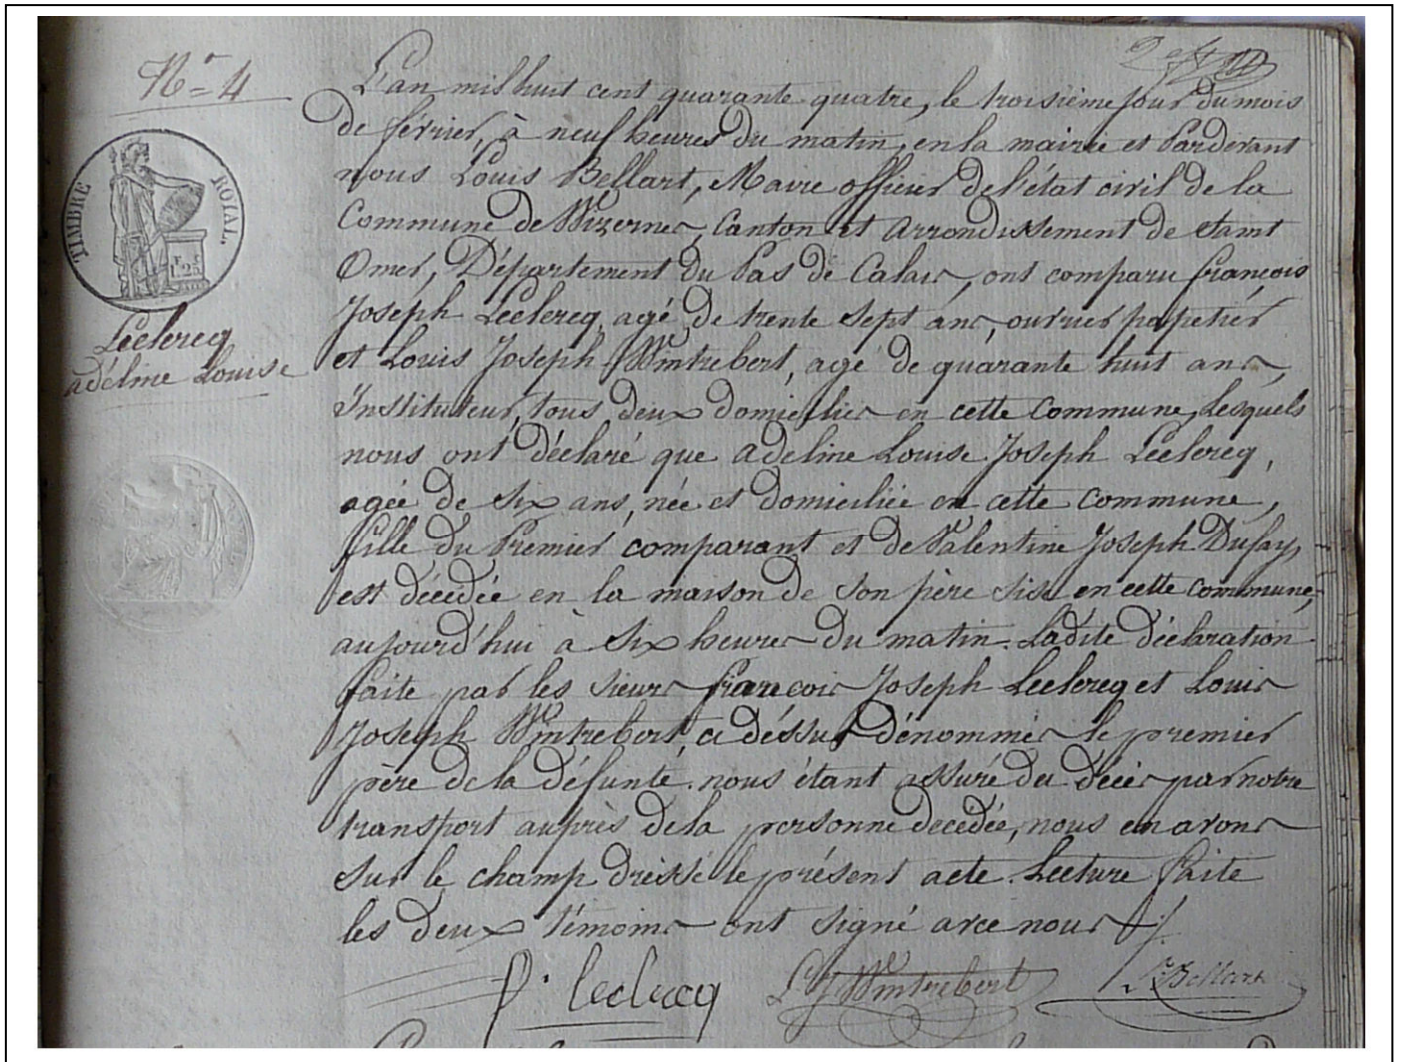 N° 4
TIMBRE ROIAL.
F. 25
Leclercq
adéline Louise
L'an mil huit cent quarante quatre, le troisième jour du mois
de février, à neuf heures du matin, en la mairie et Pardevant
nous Louis Bellart, Maire officier de l'état civil de la
Commune de Wizernes, Canton et arrondissement de Saint
Omer, Département du Pas de Calais, ont comparu françois
Joseph Leclercq, agé de trente sept ans, ouvrier papetier
et Louis Joseph Wintrebert, agé de quarante huit ans,
Instituteur, tous deux domiciliés en cette Commune, Lesquels
nous ont déclaré que adeline Louise Joseph Leclercq,
agée de six ans, née et domiciliée en cette commune,
fille du Premier comparant et de Valentine Joseph Dufay,
est décédée en la maison de son père sise en cette commune,
aujourd'hui à six heures du matin. Ladite déclaration
faite par les sieurs françois Joseph Leclercq et Louis
Joseph Wintrebert, ci déssus dénommés le premier
père de la défunte. nous étant assuré du décès par notre
transport auprès de la personne décédée, nous en avons
sur le champ dréssé le présent acte. Lecture faite
les deux témoins ont signé avec nous
f. leclercq L J Wintrebert L. Bellart